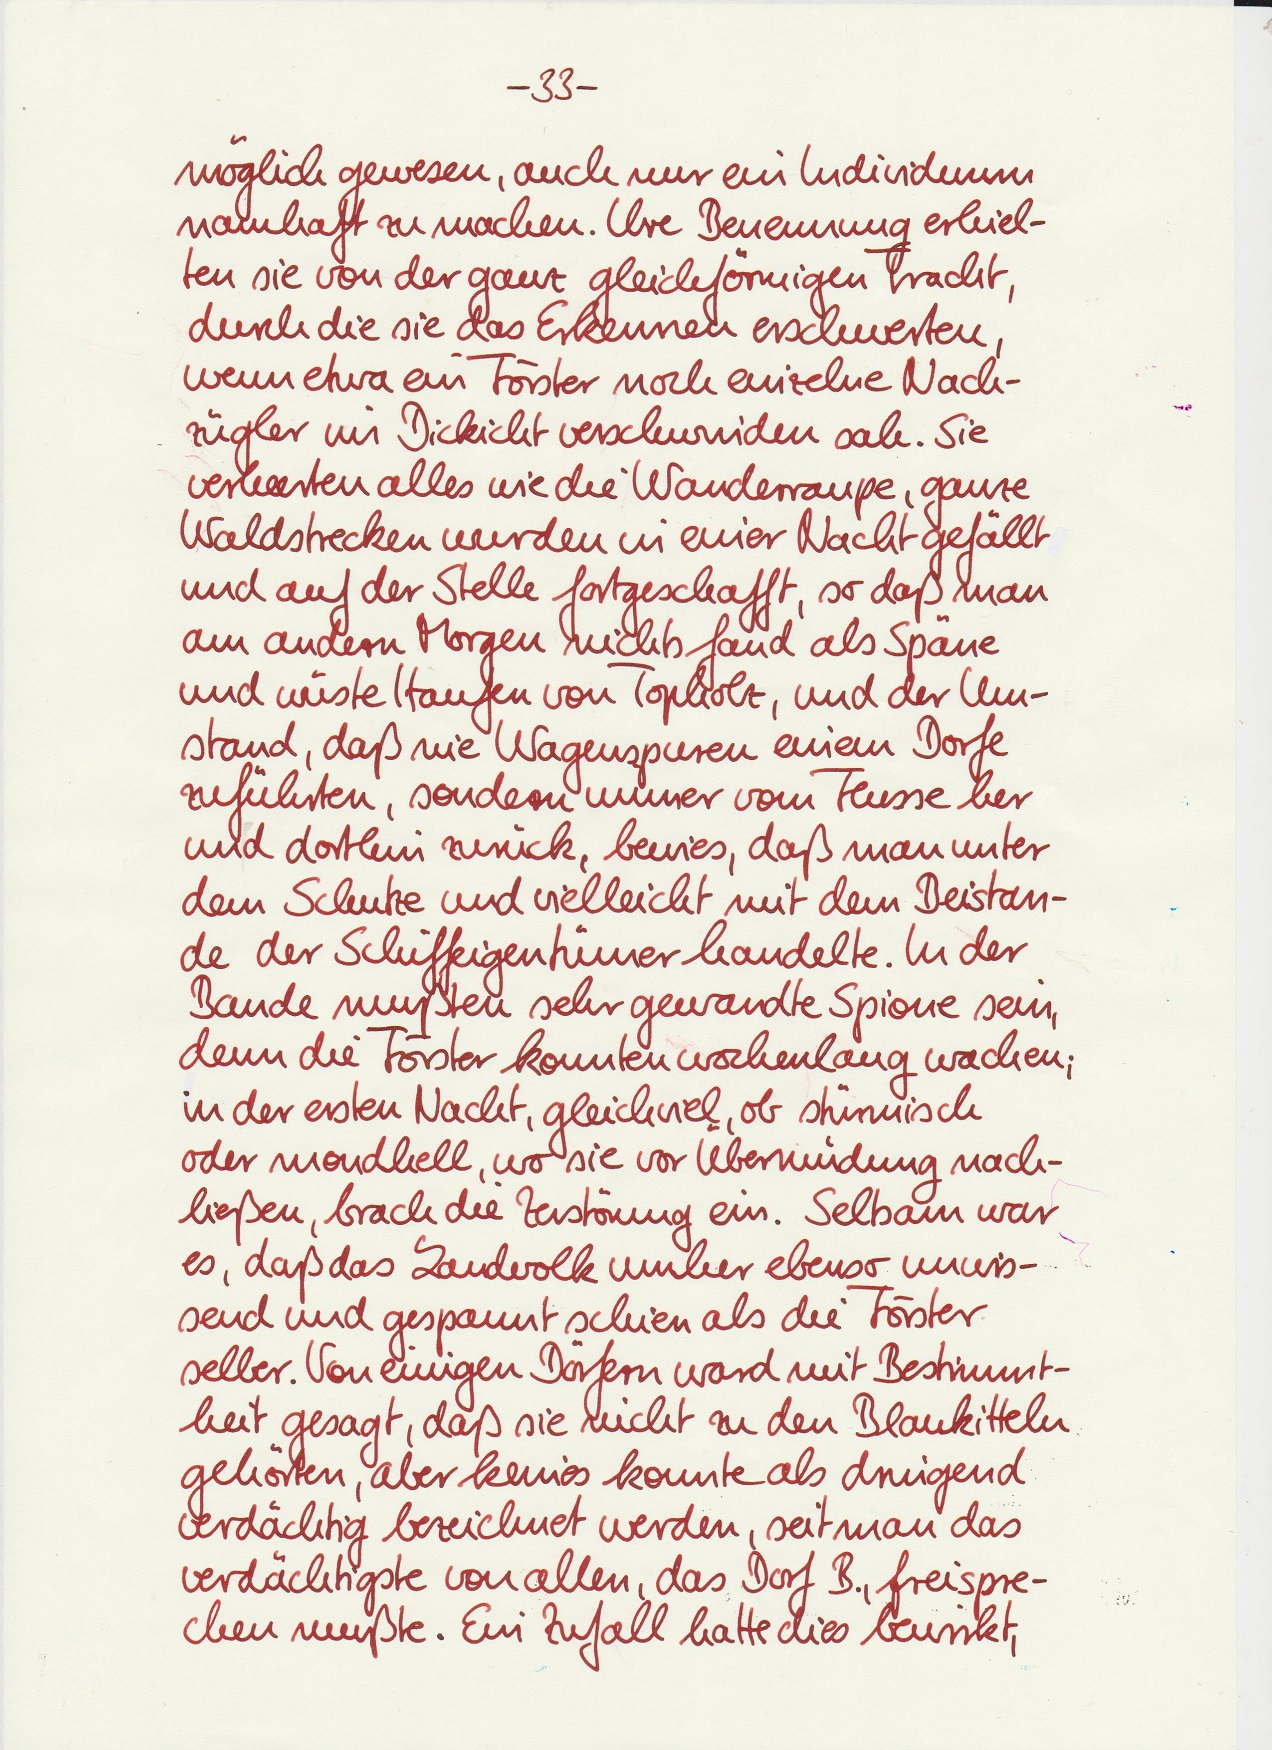 -33-
möglich gewesen, auch nur ein Individuum
namhaft zu machen. Ihre Benennung erhiel-
ten sie von der ganz gleichförmigen Tracht,
durch die sie das Erkennen erschwerten,
wenn etwa ein Förster noch einzelne Nach-
zügler im Dickicht verschwinden sah. Sie
verheerten alles wie die Wanderraupe, ganze
Waldstrecken wurden in einer Nacht gefällt
und auf der Stelle fortgeschafft, so daß man
am andern Morgen nichts fand als Späne
und wüste Haufen von Topholz, und der Um-
stand, daß nie Wagenspuren einem Dorfe
zuführten, sondern immer vom Flusse her
und dorthin zurück, bewies, daß man unter
dem Schutze und vielleicht mit dem Beistan-
de der Schiffeigentümer handelte. In der
Bande mußten sehr gewandte Spione sein,
denn die Förster konnten wochenlang wachen;
in der ersten Nacht, gleichviel, ob stürmisch
oder mondhell, wo sie vor Übermüdung nach-
ließen, brach die Zerstörung ein. Seltsam war
es, daß das Landvolk umher ebenso unwis-
send und gespannt schien als die Förster
selber. Von einigen Dörfern ward mit Bestimmt-
heit gesagt, daß sie nicht zu den Blaukitteln
gehörten, aber keines konnte als dringend
verdächtig bezeichnet werden, seit man das
verdächtigste von allen, das Dorf B., freispre-
chen mußte. Ein Zufall hatte dies bewirkt,